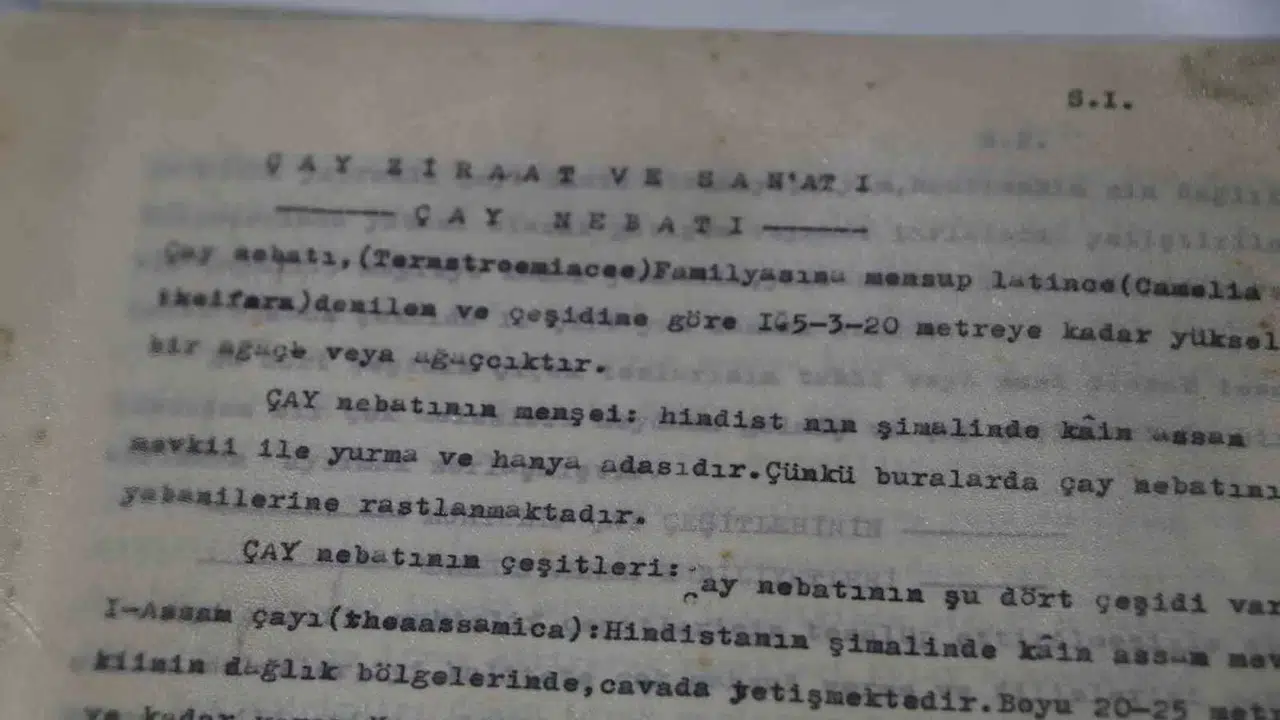 S.I.
ÇAY ZİRAAT VE SAN'ATI
ÇAY NEBATI
Çay nebatı,(Ternstroemiacee)Familyasına mensup latince(Camelia
theifara)denilen ve çeşidine göre 165-3-20 metreye kadar yüksel
bir ağaçk veya ağaçcıktır.
ÇAY nebatının menşei: hindist nın şimalinde kâin assam
mevkii ile yurma ve hanya adasıdır.Çünkü buralarda çay nebatını
yabanilerine rastlanmaktadır.
ÇEŞİTLERİNİN
ÇAY nebatının çeşitleri: ay nebatının şu dört çeşidi var
I-Assam çayı(theaassamica):Hindistanın şimalinde kâin assam mev
kiinin dağlık bölgelerinde,cavada yetişmektedir.Boyu 20-25 met
ye kadar